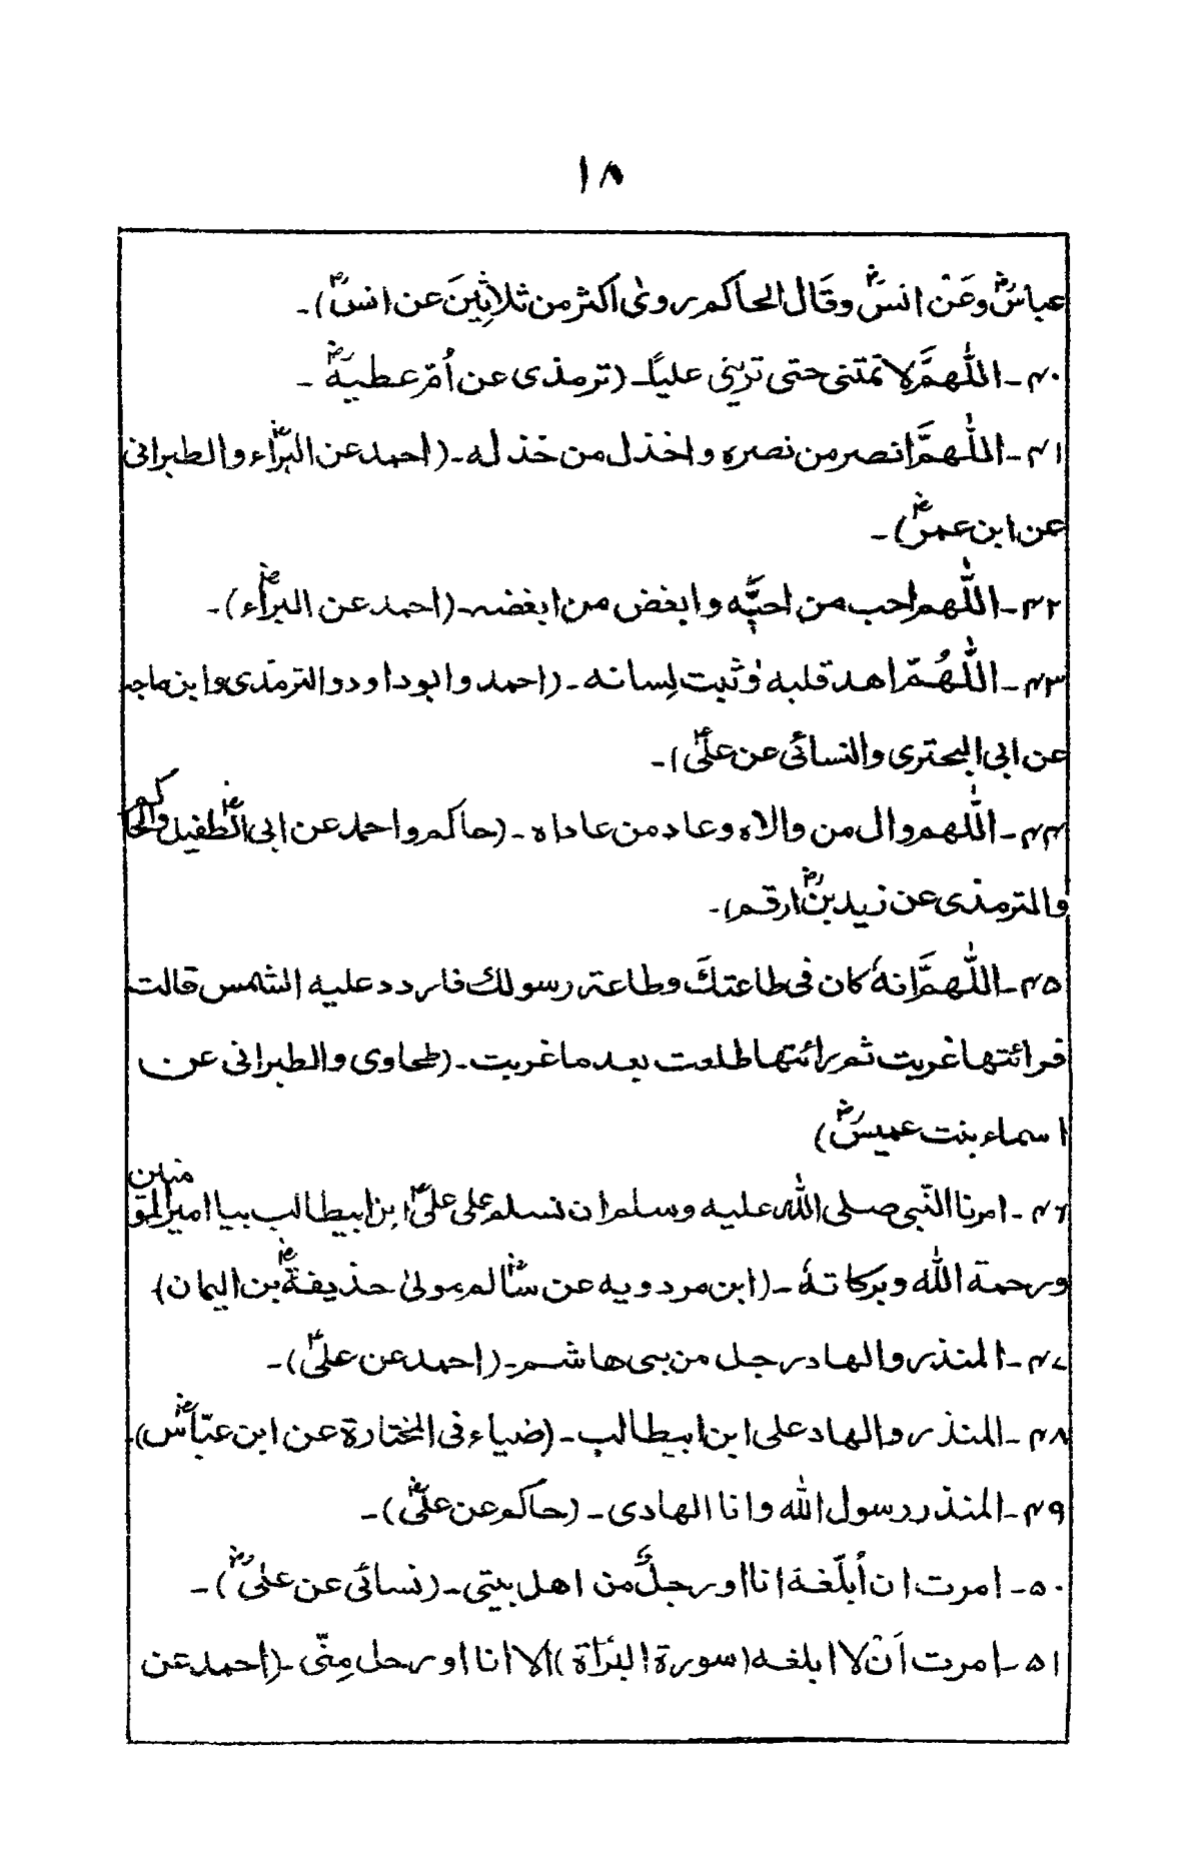 ١٨
عباسؓ وعَنْ انسؓ وقَال الحاكم روىٰ اكثر من ثلاثِينَ عن انسؓ)۔
۴۰۔ اللّٰهمَّ لا تمتنى حتى ترينى علياً۔ (ترمذى عن اُمّ عطيةؓ ۔
۴۱۔ اللّٰهمَّ انصر من نصره واخذل من خذله۔ (احمد عن البرّاء والطبرانى
عن ابن عمرؓ)۔
۴۲۔ اللّٰهم احب من احبَّه وابغض من ابغضه۔ (احمد عن البراؓء)۔
۴۳۔ اللّٰهُمّ اهد قلبه وثبت لِسانه۔ (احمد وابوداود والترمذى وابن ماجه
عن ابى البحترى والنسائى عن علىؑ)۔
۴۴۔ اللّٰهم وال من والاه وعاد من عاداه۔ (حاكم واحمد عن ابى الطفيلؓ والحاكم
والترمذى عن زيد بنؓ ارقم)۔
۴۵۔ اللّٰهمَّ انهٗ كان فى طاعتكَ وطاعة رسولك فاردد عليه الشمس قالت
فرائتها غربت ثم رائتها طلعت بعد ما غربت۔ (طحاوى والطبرانى عن
اسماء بنت عميسؓ)
۴۶۔ امرنا النّبى صلى اللّٰه عليه وسلم ان نسلم على علىؑ ابن ابيطالب بيا اميرالمؤمنين
ورحمة اللّٰه وبركاتهٗ۔ (ابن مردويه عن سالم مولىٰ حذيفةؓ بن اليمان)
۴۷۔ المنذر والهاد رجل من بنى هاشم۔ (احمد عن علىؑ)۔
۴۸۔ المنذر والهاد على ابن ابيطالب۔ (ضياء فى المختارة عن ابن عبّاسؓ)۔
۴۹۔ المنذر رسول اللّٰه وانا الهادى۔ (حاكم عن علىؓ)۔
۵۰۔ امرت ان اُبلّغة انا او رجلٌ من اهل بيتى۔ (نسائى عن علىؓ)۔
۵۱۔ امرت اَنْ لا ابلغه (سورة البرَأة) الا انا او رجل مِنّى۔ (احمد عن